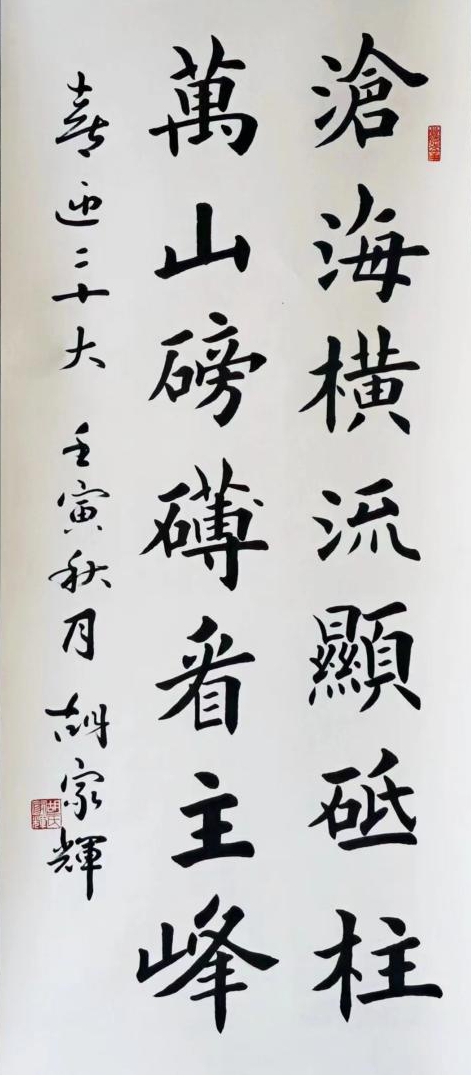 滄海橫流顯砥柱
萬山磅礴看主峰
喜迎二十大 壬寅秋月 胡家輝